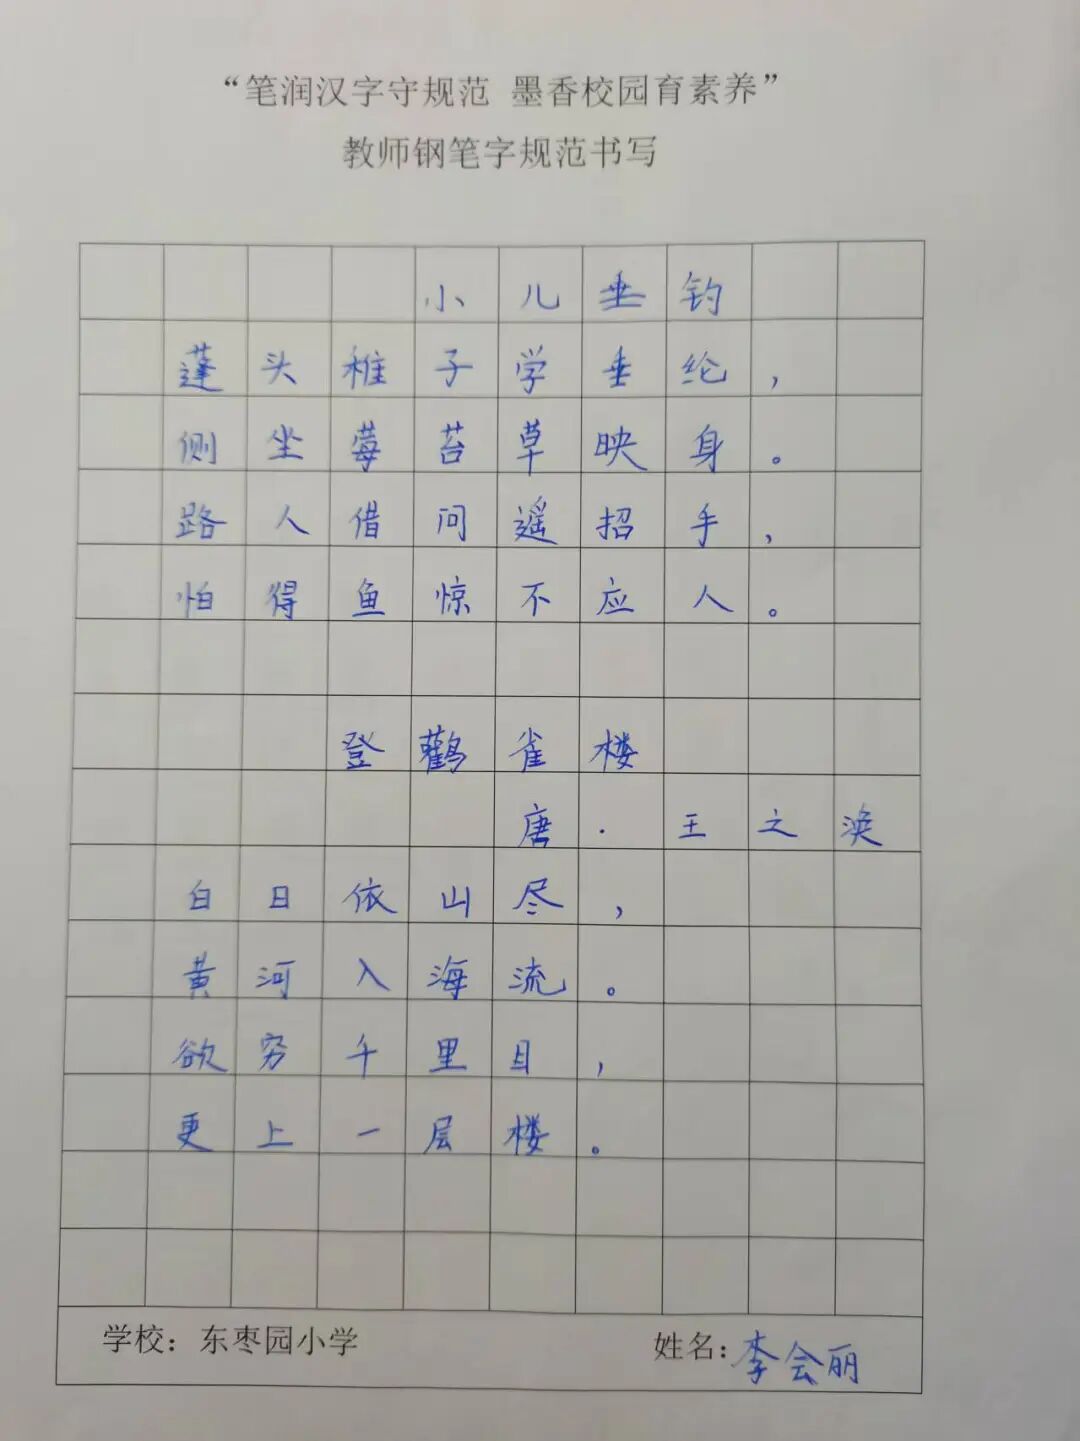 “笔润汉字守规范 墨香校园育素养”
教师钢笔字规范书写
小儿垂钓
蓬头稚子学垂纶，
侧坐莓苔草映身。
路人借问遥招手，
怕得鱼惊不应人。
登鹳雀楼
唐·王之涣
白日依山尽，
黄河入海流。
欲穷千里目，
更上一层楼。
学校：东枣园小学 姓名：李会丽